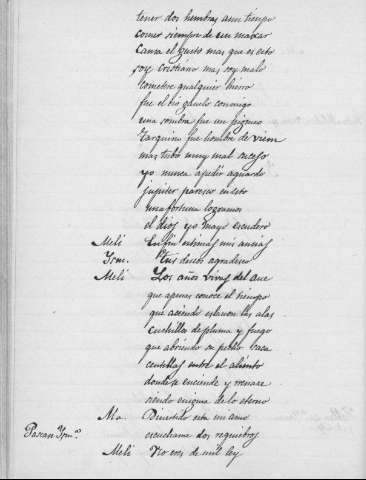 tener dos hembras a un tiempo
comer siempre de un manjar
cansa el gusto mas que es esto
soy cristiano mas soy malo
cometere cualquier hierro
fue el rio zanelo conmigo
una sombra fue un
Tarquino fue hombre de vien
mas tubo muy mal suceso
yo nunca a pedir aguardo
jupiter paresco en esto
una fortuna logramos
el dios yo mayo escudero
Meli En fin estimas mis ansias
Ysm. Tus deseos agradesco
Meli Los años vivas del ave
que apenas conoce el tiempo
que asiendo eslavon las alas
cuchillas de pluma y fuego
que abriendo su pecho saca
centellas entre el aliento
donde se enciende y renace
siendo enigma de lo eterno
Ma. Divertido esta mi amo
Pasean Ysm.ª escuchame dos requiebros
Meli Yo eres de mil ley